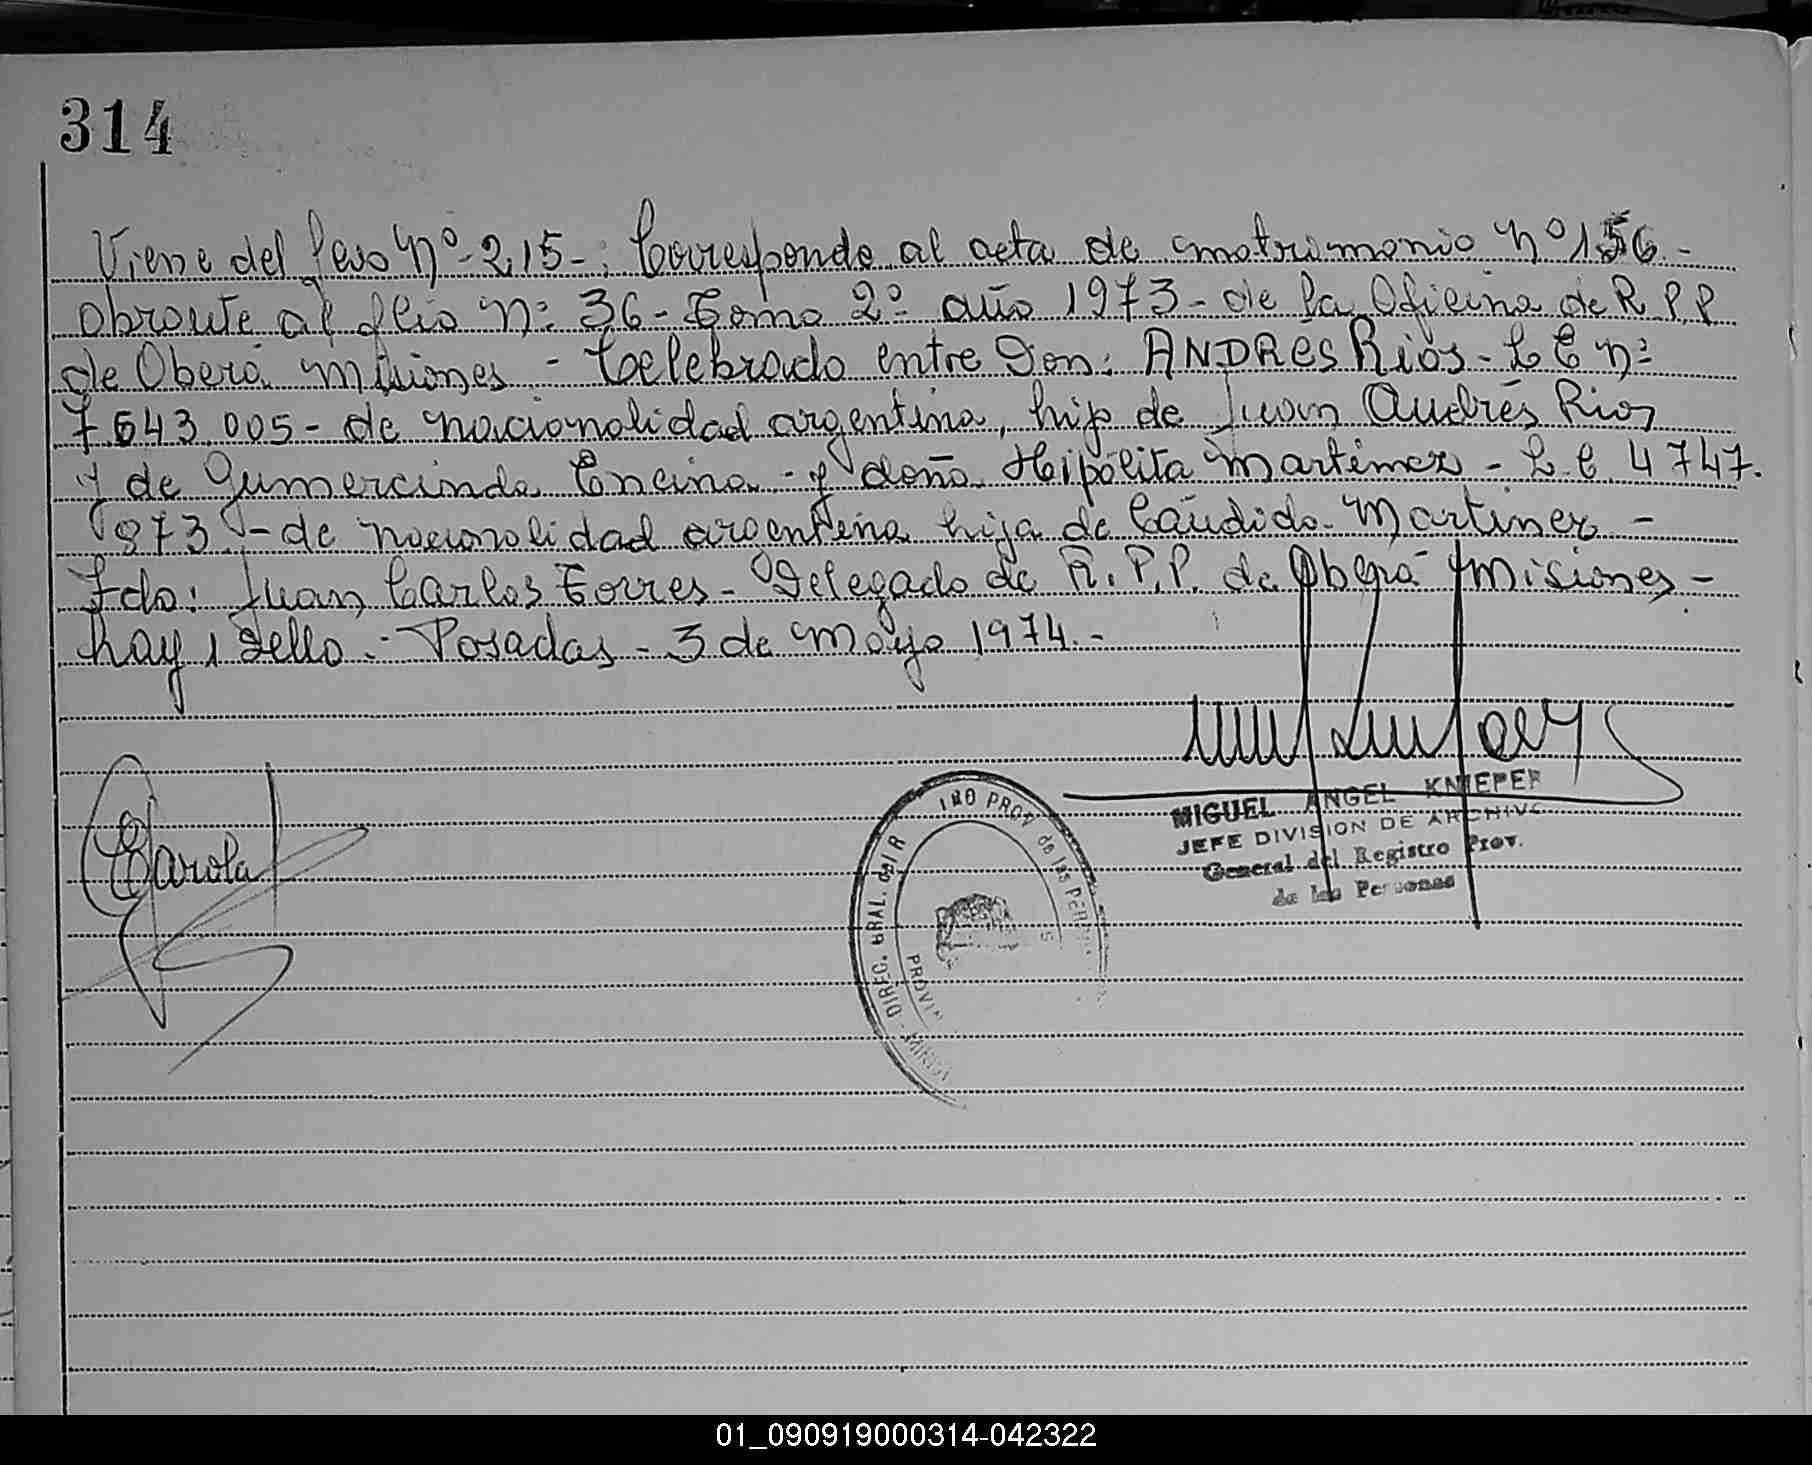 314
Viene del feso Nº-215-: Corresponde al acta de matrimonio Nº 156.-
obrante al folio Nº: 36- Tomo 2º año 1973- de la Oficina de R.P.P
de Oberá misiones - Celebrado entre Don: ANDRES Rios- L E Nº
7.643.005- de nacionalidad argentina, hijo de Juan Andrés Rios
y de Gumercinda Encina - y doña Hipólita martinez - L.C 4747.
973.- de nacionalidad argentina hija de Cándida Martinez -
Fdo: Juan Carlos Torres - Delegado de R.P.P. de Oberá misiones -
hay 1 sello.- Posadas - 3 de mayo 1974.-
MIGUEL ANGEL KNIEPER
JEFE DIVISION DE ARCHIVO
General del Registro Prov.
de las Personas
DIREC. GRAL. del R PROV de las PER
PROVIN MISI
Carola
01_090919000314-042322